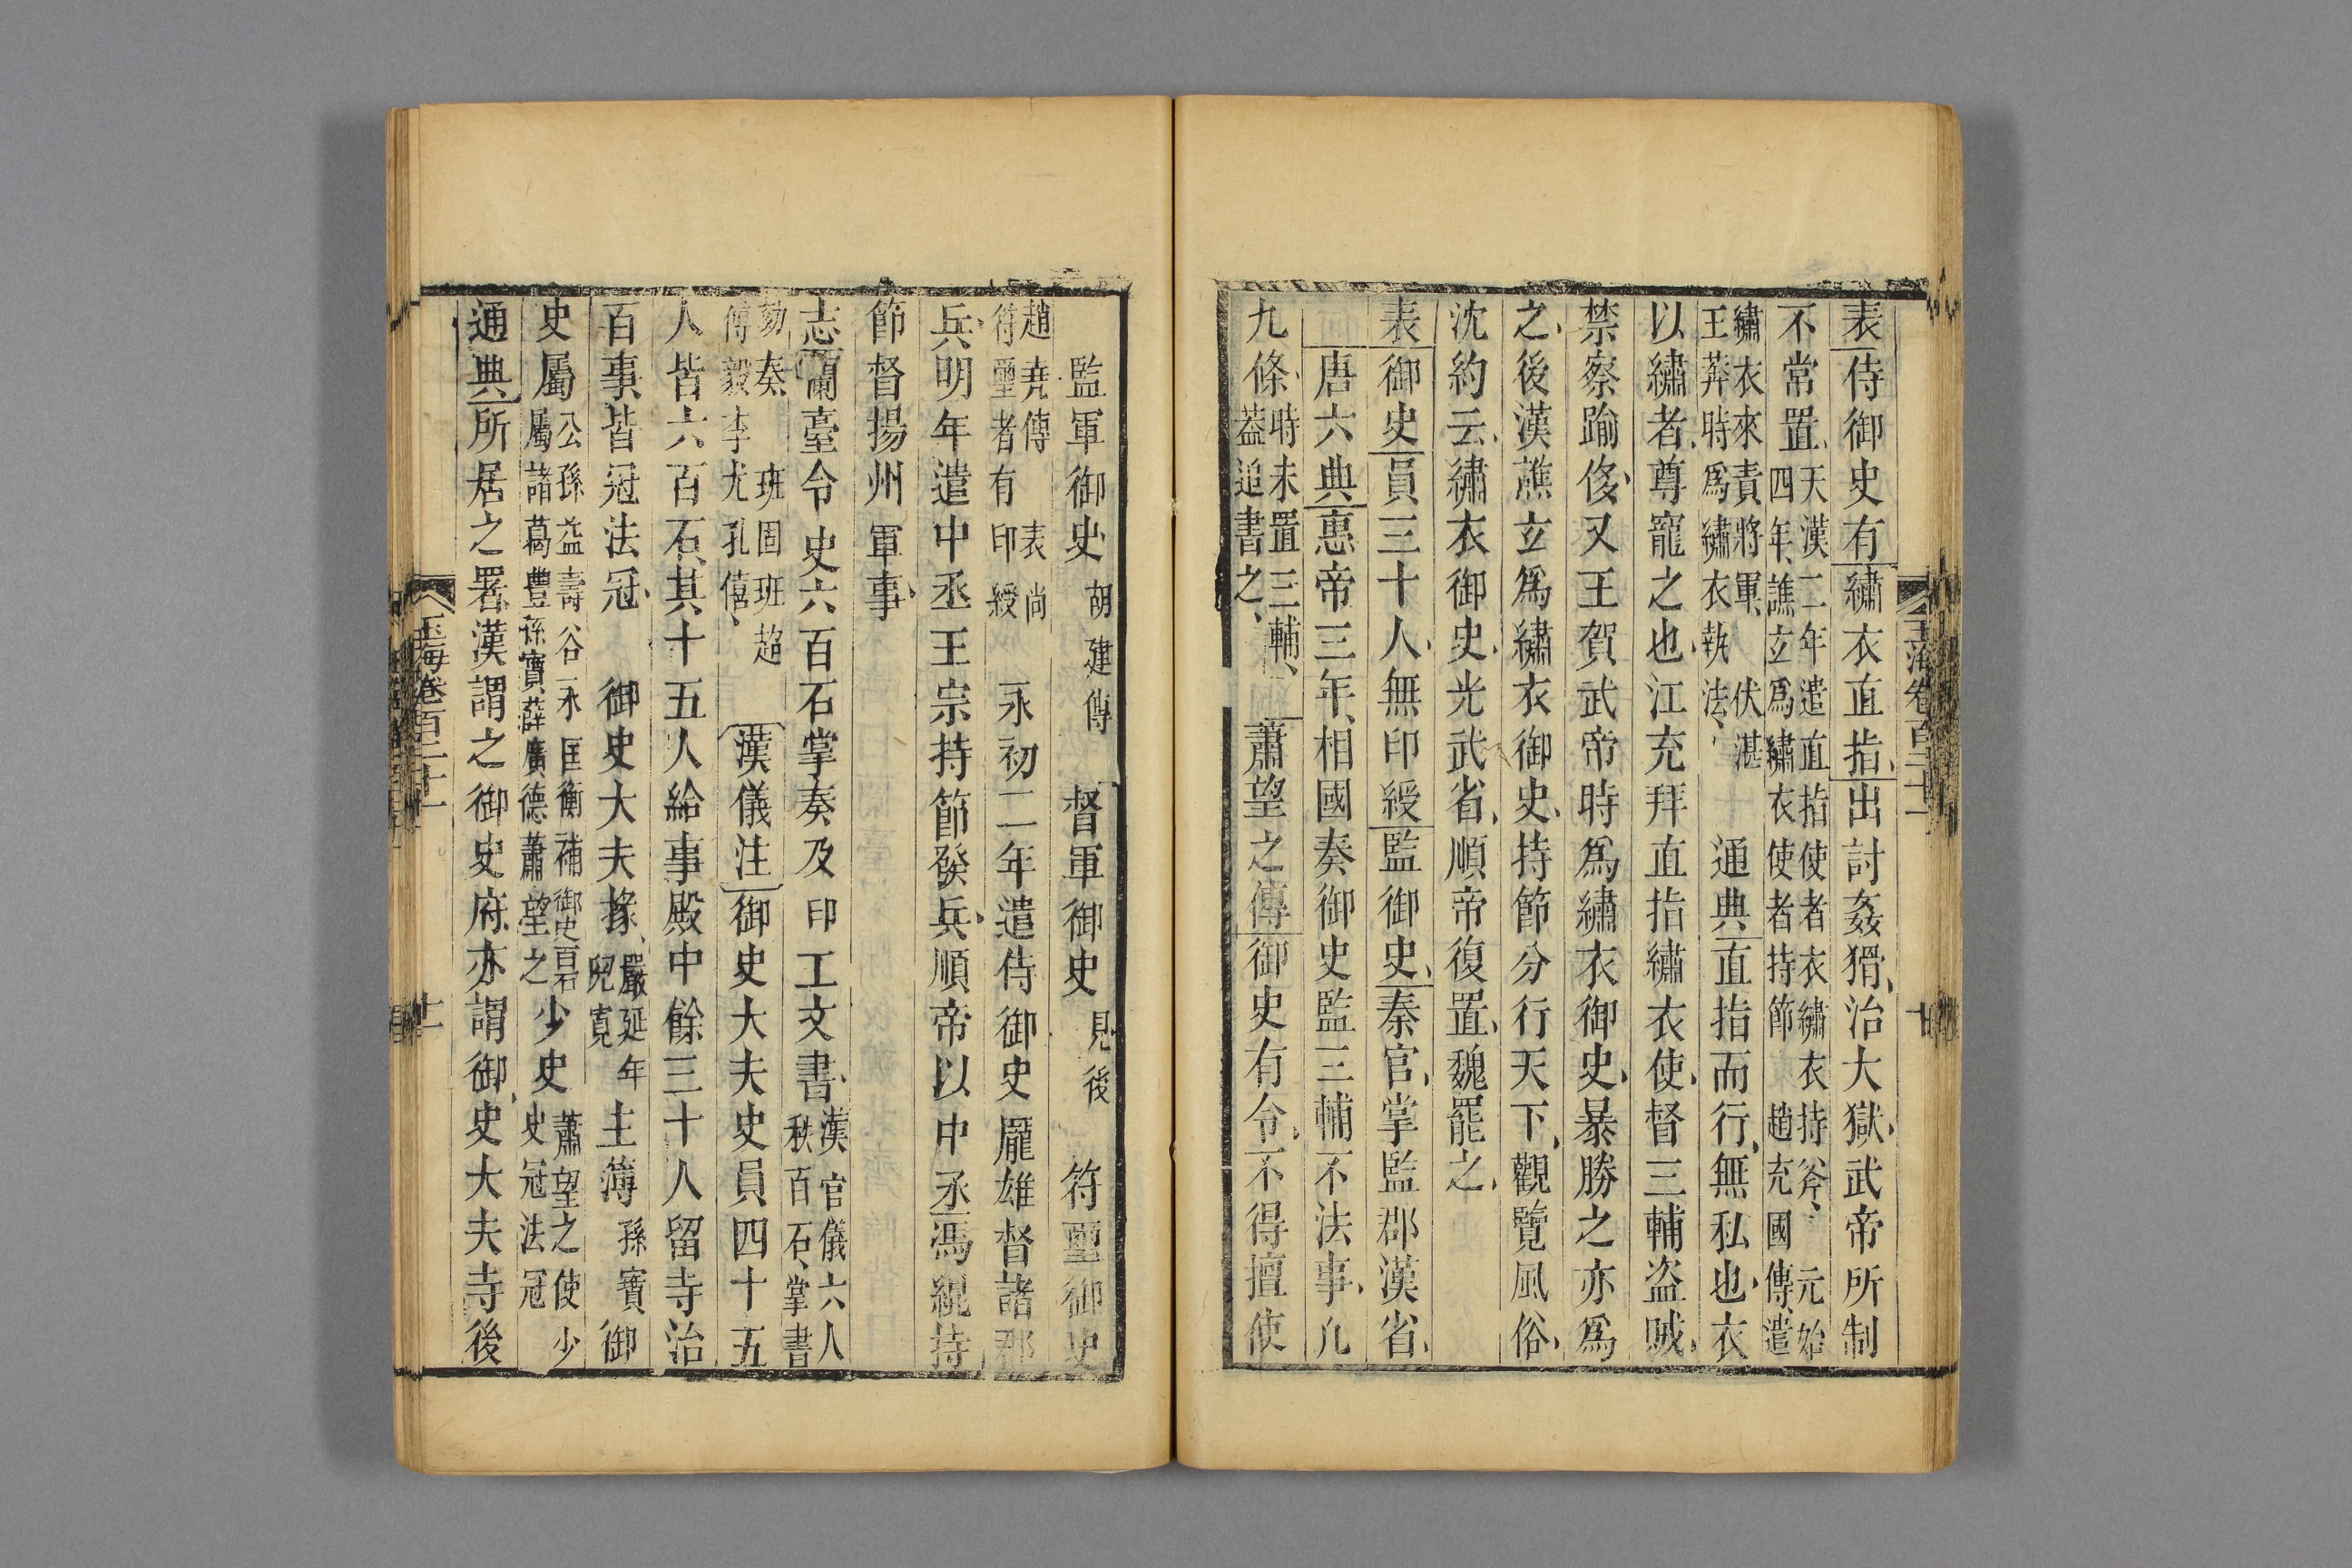 表侍御史有繡衣直指出討姦猾治大獄武帝所制
不常置天漢二年遣直指使者衣繡衣持斧元始四年譙玄爲繡衣使者持節趙充國傳遣
繡衣來責將軍伏湛王莽時爲繡衣執法通典直指而行無私也衣
以繡者尊寵之也江充拜直指繡衣使督三輔盜賊
禁察踰侈又王賀武帝時爲繡衣御史暴勝之亦爲
之後漢譙玄爲繡衣御史持節分行天下觀覽風俗
沈約云繡衣御史光武省順帝復置魏罷之
表御史員三十人無印綬監御史秦官掌監郡漢省
唐六典惠帝三年相國奏御史監三輔不法事凡
九條時未置三輔蓋追書之蕭望之傳御史有令不得擅使
玉海卷百二十一
十
監軍御史胡建傳督軍御史見後符璽御史
趙堯傳表尚符璽者有印綬永初二年遣侍御史龐雄督諸郡
兵明年遣中丞王宗持節發兵順帝以中丞馮緄持
節督揚州軍事
志蘭臺令史六百石掌奏及印工文書漢官儀六人秩百石掌書
劾奏班固班超傅毅李尤孔僖漢儀注御史大夫史員四十五
人皆六百石其十五人給事殿中餘三十人留寺治
百事皆冠法冠御史大夫掾嚴延年兒寬主簿孫寶御
史屬公孫益壽谷永匡衡補御史百石屬諸葛豐孫寶薛廣德蕭望之少史蕭望之使少史冠法冠
通典所居之署漢謂之御史府亦謂御史大夫寺後
玉海卷百二十一
十一